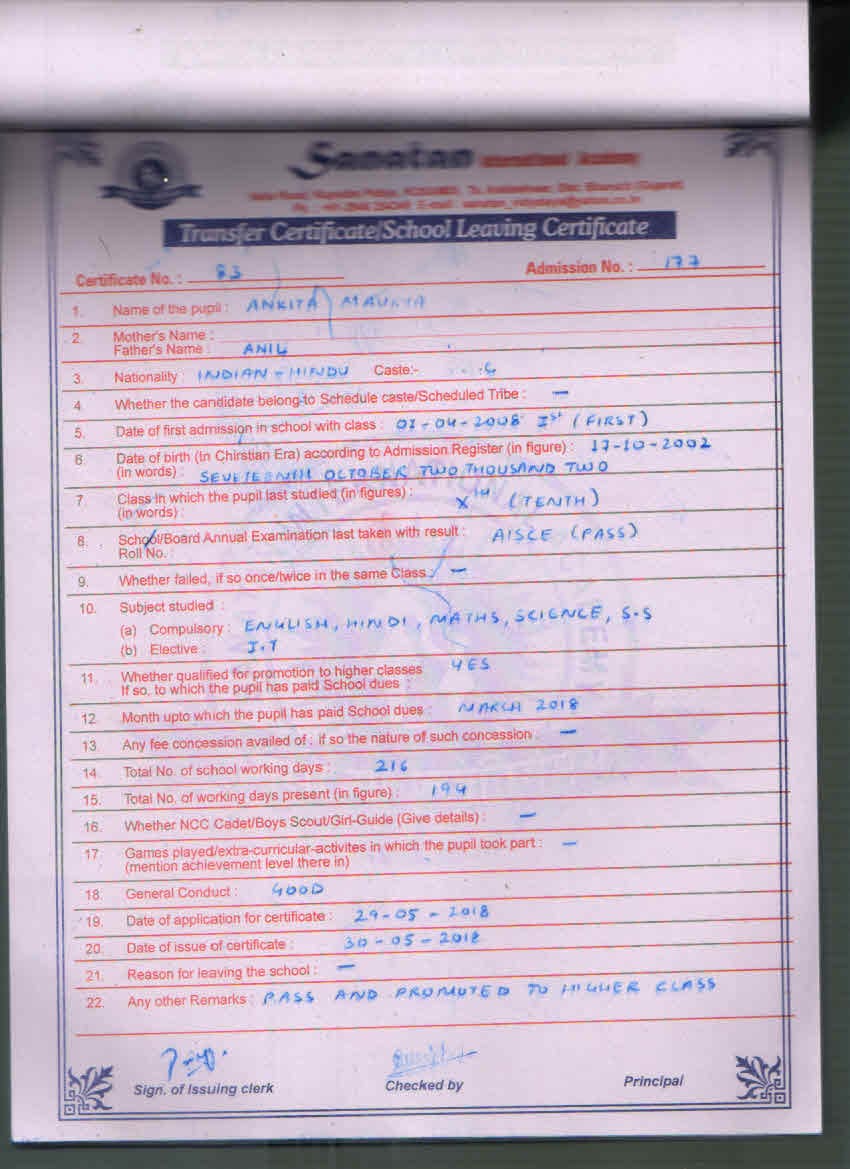 Sanatan International Academy
Transfer Certificate/School Leaving Certificate
Certificate No. : 83 Admission No. : 177
1. Name of the pupil : ANKITA MAURYA
2. Mother's Name :
Father's Name : ANIL
3. Nationality : INDIAN - HINDU Caste:-
4. Whether the candidate belong to Schedule caste/Scheduled Tribe : —
5. Date of first admission in school with class : 01-04-2008 Ist (FIRST)
6. Date of birth (In Chirstian Era) according to Admission Register (in figure) : 17-10-2002
(in words) : SEVETEENTH OCTOBER TWO THOUSAND TWO
7. Class in which the pupil last studied (in figures) : Xth (TENTH)
(in words) :
8. School/Board Annual Examination last taken with result : AISCE (PASS)
Roll No. :
9. Whether failed, if so once/twice in the same Class : —
10. Subject studied :
(a) Compulsory : ENGLISH, HINDI, MATHS, SCIENCE, S.S
(b) Elective : I.T
11. Whether qualified for promotion to higher classes YES
If so, to which the pupil has paid School dues :
12. Month upto which the pupil has paid School dues : MARCH 2018
13. Any fee concession availed of : if so the nature of such concession : —
14. Total No. of school working days : 216
15. Total No. of working days present (in figure) : 194
16. Whether NCC Cadet/Boys Scout/Girl-Guide (Give details) : —
17. Games played/extra-curricular-activites in which the pupil took part : —
(mention achievement level there in)
18. General Conduct : GOOD
19. Date of application for certificate : 29-05-2018
20. Date of issue of certificate : 30-05-2018
21. Reason for leaving the school : —
22. Any other Remarks : PASS AND PROMOTED TO HIGHER CLASS
Sign. of Issuing clerk Checked by Principal